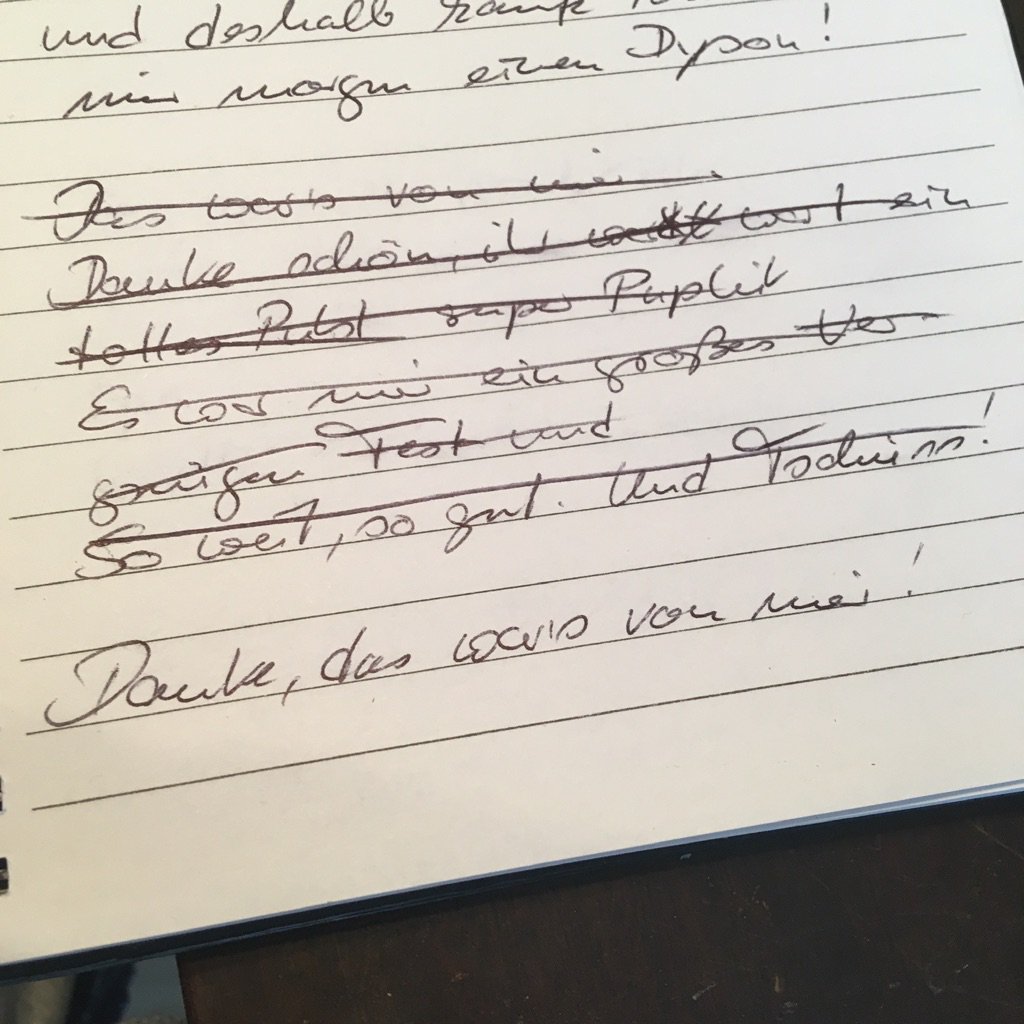 und deshalb kaufe
mir morgen einen Dyson!
Das war's von mir.
Danke schön, ihr wart ein
tolles Publ super Puplik
Es war mir ein großes Ver-
gnügen Fest und
So weit, so gut. Und Tschüss!
Danke, das war's von mir!